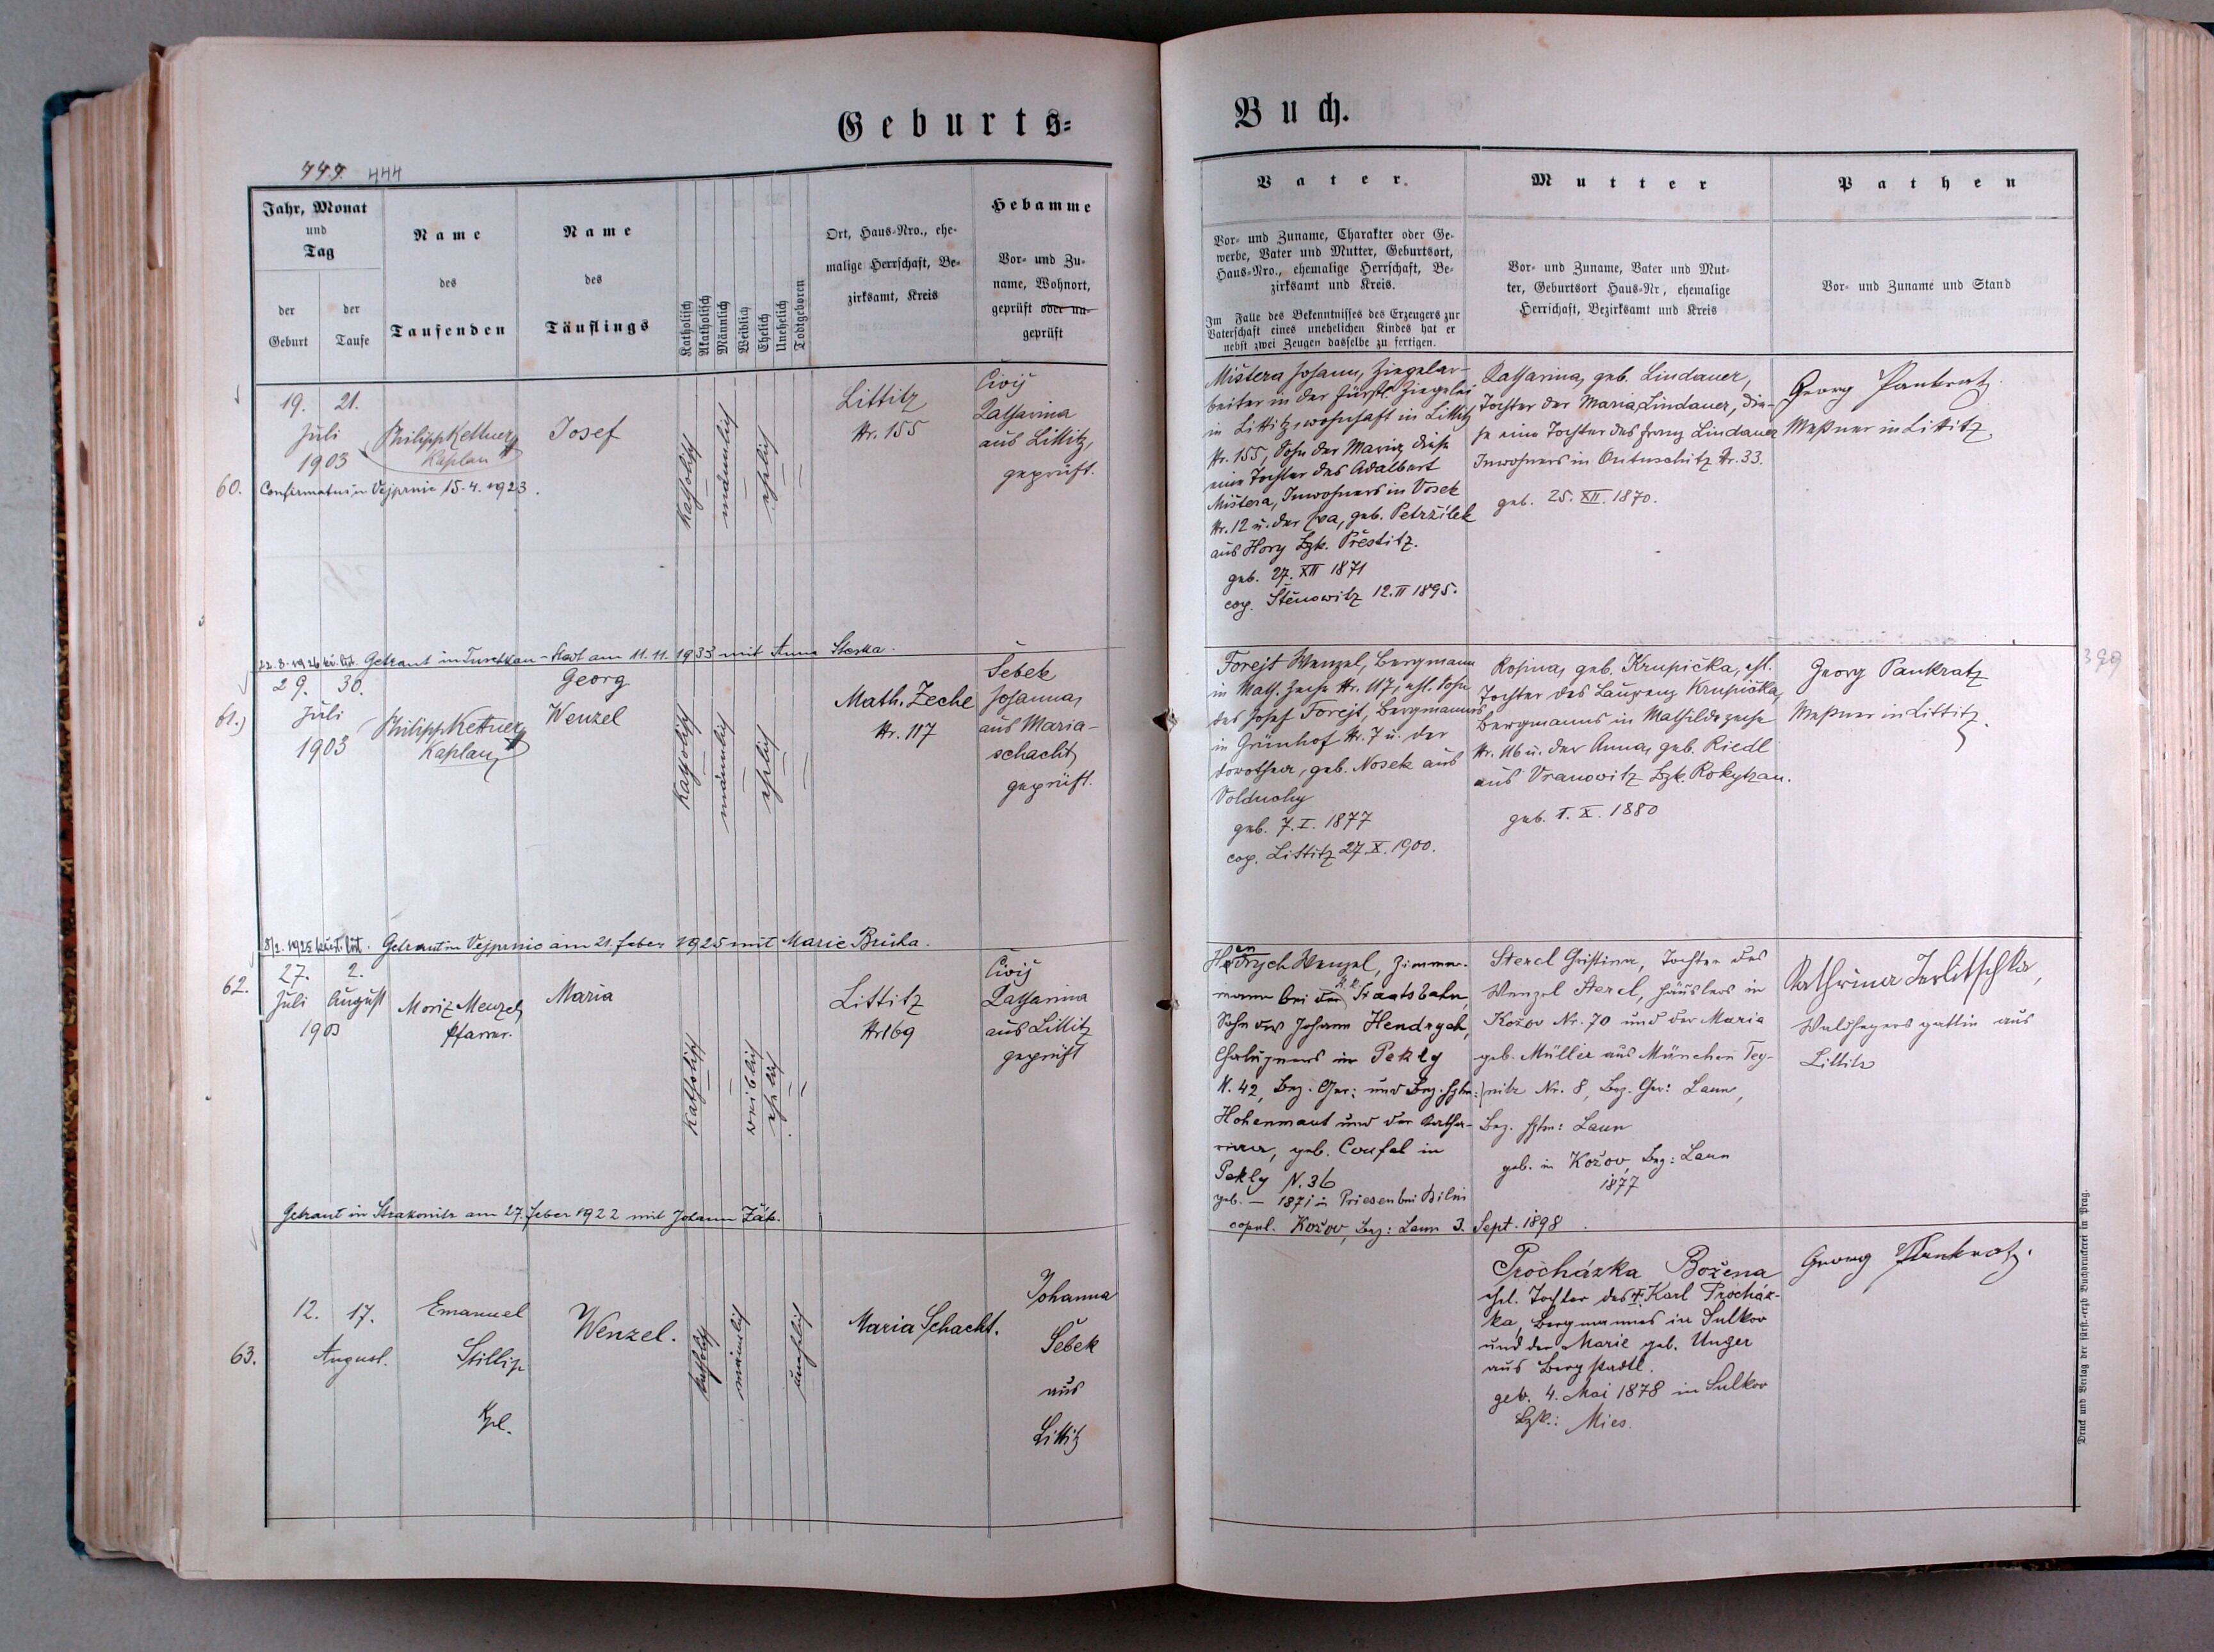 Geburts=
Buch.
444
Jahr, Monat
und
Tag
der
Geburt
der
Taufe
Name
des
Taufenden
Name
des
Täuflings
Katholisch
Akatholisch
Männlich
Weiblich
Ehelich
Unehelich
Todtgeboren
Ort, Haus-Nro., ehe-
malige Herrschaft, Be-
zirksamt, Kreis
Hebamme
Vor- und Zu-
name, Wohnort,
geprüft oder un-
geprüft
Vater.
Vor- und Zuname, Charakter oder Ge-
werbe, Vater und Mutter, Geburtsort,
Haus-Nro., ehemalige Herrschaft, Be-
zirksamt und Kreis.
Im Falle des Bekenntnisses des Erzeugers zur
Vaterschaft eines unehelichen Kindes hat er
nebst zwei Zeugen dasselbe zu fertigen.
Mutter
Vor- und Zuname, Vater und Mut-
ter, Geburtsort Haus-Nr, ehemalige
Herrschaft, Bezirksamt und Kreis
Pathen
Vor- und Zuname und Stand
60.
19. 21.
Juli
1903
Philipp Kettner
Kaplan
Josef
Confirmatus in Vejprnic 15.4.1923.
katholisch
männlich
ehelich
Littitz
Nr. 155
Čivij
Katharina
aus Littitz,
geprüft.
Mištera Johann, Ziegelar-
beiter in der Fürstl. Ziegelei
in Littitz, wohnhaft in Littitz
Nr. 155, Sohn der Maria, diese
eine Tochter des Adalbert
Mištera, Inwohners in Vosek
Nr. 12 u. der Eva, geb. Petržilek
aus Hory Bzk. Přestitz.
geb. 27. XII 1871
cop. Stěnowitz 12. II 1895.
Katharina, geb. Lindauer,
Tochter der Maria Lindauer, die-
se eine Tochter des Franz Lindauer
Inwohners in Ontuschitz Nr. 33.
geb. 25. XII. 1870.
Georg Pankratz
Meßner in Littitz.
Getraut in Tuschkau-Stadt am 11.11.1933 mit Anna
61.)
29. 30.
Juli
1903
Philipp Kettner
Kaplan
Georg
Wenzel
katholisch
männlich
ehelich
Math. Zeche
Nr. 117
Šebek
Johanna,
aus Maria-
schacht,
geprüft.
Forejt Wenzel, Bergmann
in Math. Zeche Nr. 117, ehl. Sohn
des Josef Forejt, Bergmannes
in Grünhof Nr. 7 u. der
Dorothea, geb. Nosek aus
Volduchy
geb. 7. I. 1877
cop. Littitz 27. X. 1900.
Rosina, geb. Krupička, ehl.
Tochter des Laurenz Krupička,
Bergmanns in Mathildezeche
Nr. 116 u. der Anna, geb. Riedl
aus Vranowitz Bzk. Rokytzan.
geb. 1. X. 1880
Georg Pankratz
Meßner in Littitz.
399
Getraut in Vejprnic am 21. Feber 1925 mit Marie Brüha.
62.
27. 2.
Juli August
1903
Moriz Menzel,
Pfarrer.
Maria
katholisch
weiblich
ehelich
Littitz
Nr 169
Čivij
Katharina
aus Littitz
geprüft
Hendrych Wenzel, Zimmer-
mann bei der k.k. Staatsbahn,
Sohn des Johann Hendrych,
Chalupners in Pekly
N. 42, Bez. Ger. und Bez. Hptm:
Hohenmaut und der Katha-
rina, geb. Coufal in
Pekly N. 36
geb. – 1871 in Priesen bei Bilin
copul. Kožov, Bez: Laun 3. Sept. 1898
Stercl Christina, Tochter des
Wenzel Stercl, Häuslers in
Kožov Nr. 70 und der Maria
geb. Müller aus München Tey-
nitz Nr. 8, Bez. Ger: Laun,
Bez. Hptm: Laun
geb. in Kožov, Bez: Laun
1877
Waldhegers gattin aus
Littitz
Getraut in Strakonitz am 27. Feber 1922 mit Johann Žák.
63.
12. 17.
August.
Emanuel
Stillip
Kpl.
Wenzel.
katholisch
männlich
unehelich
Maria Schacht.
Johanna
Šebek
aus
Littitz
Procházka Božena
ehl. Tochter des † Karl Procház-
ka, Bergmannes in Sulkov
und der Marie geb. Unger
aus Bergstadtl.
geb. 4. Mai 1878 in Sulkov
Bzk.: Mies.
Georg Pankratz.
Druck und Verlag der fürst.-erzb Buchdruckerei in Prag.